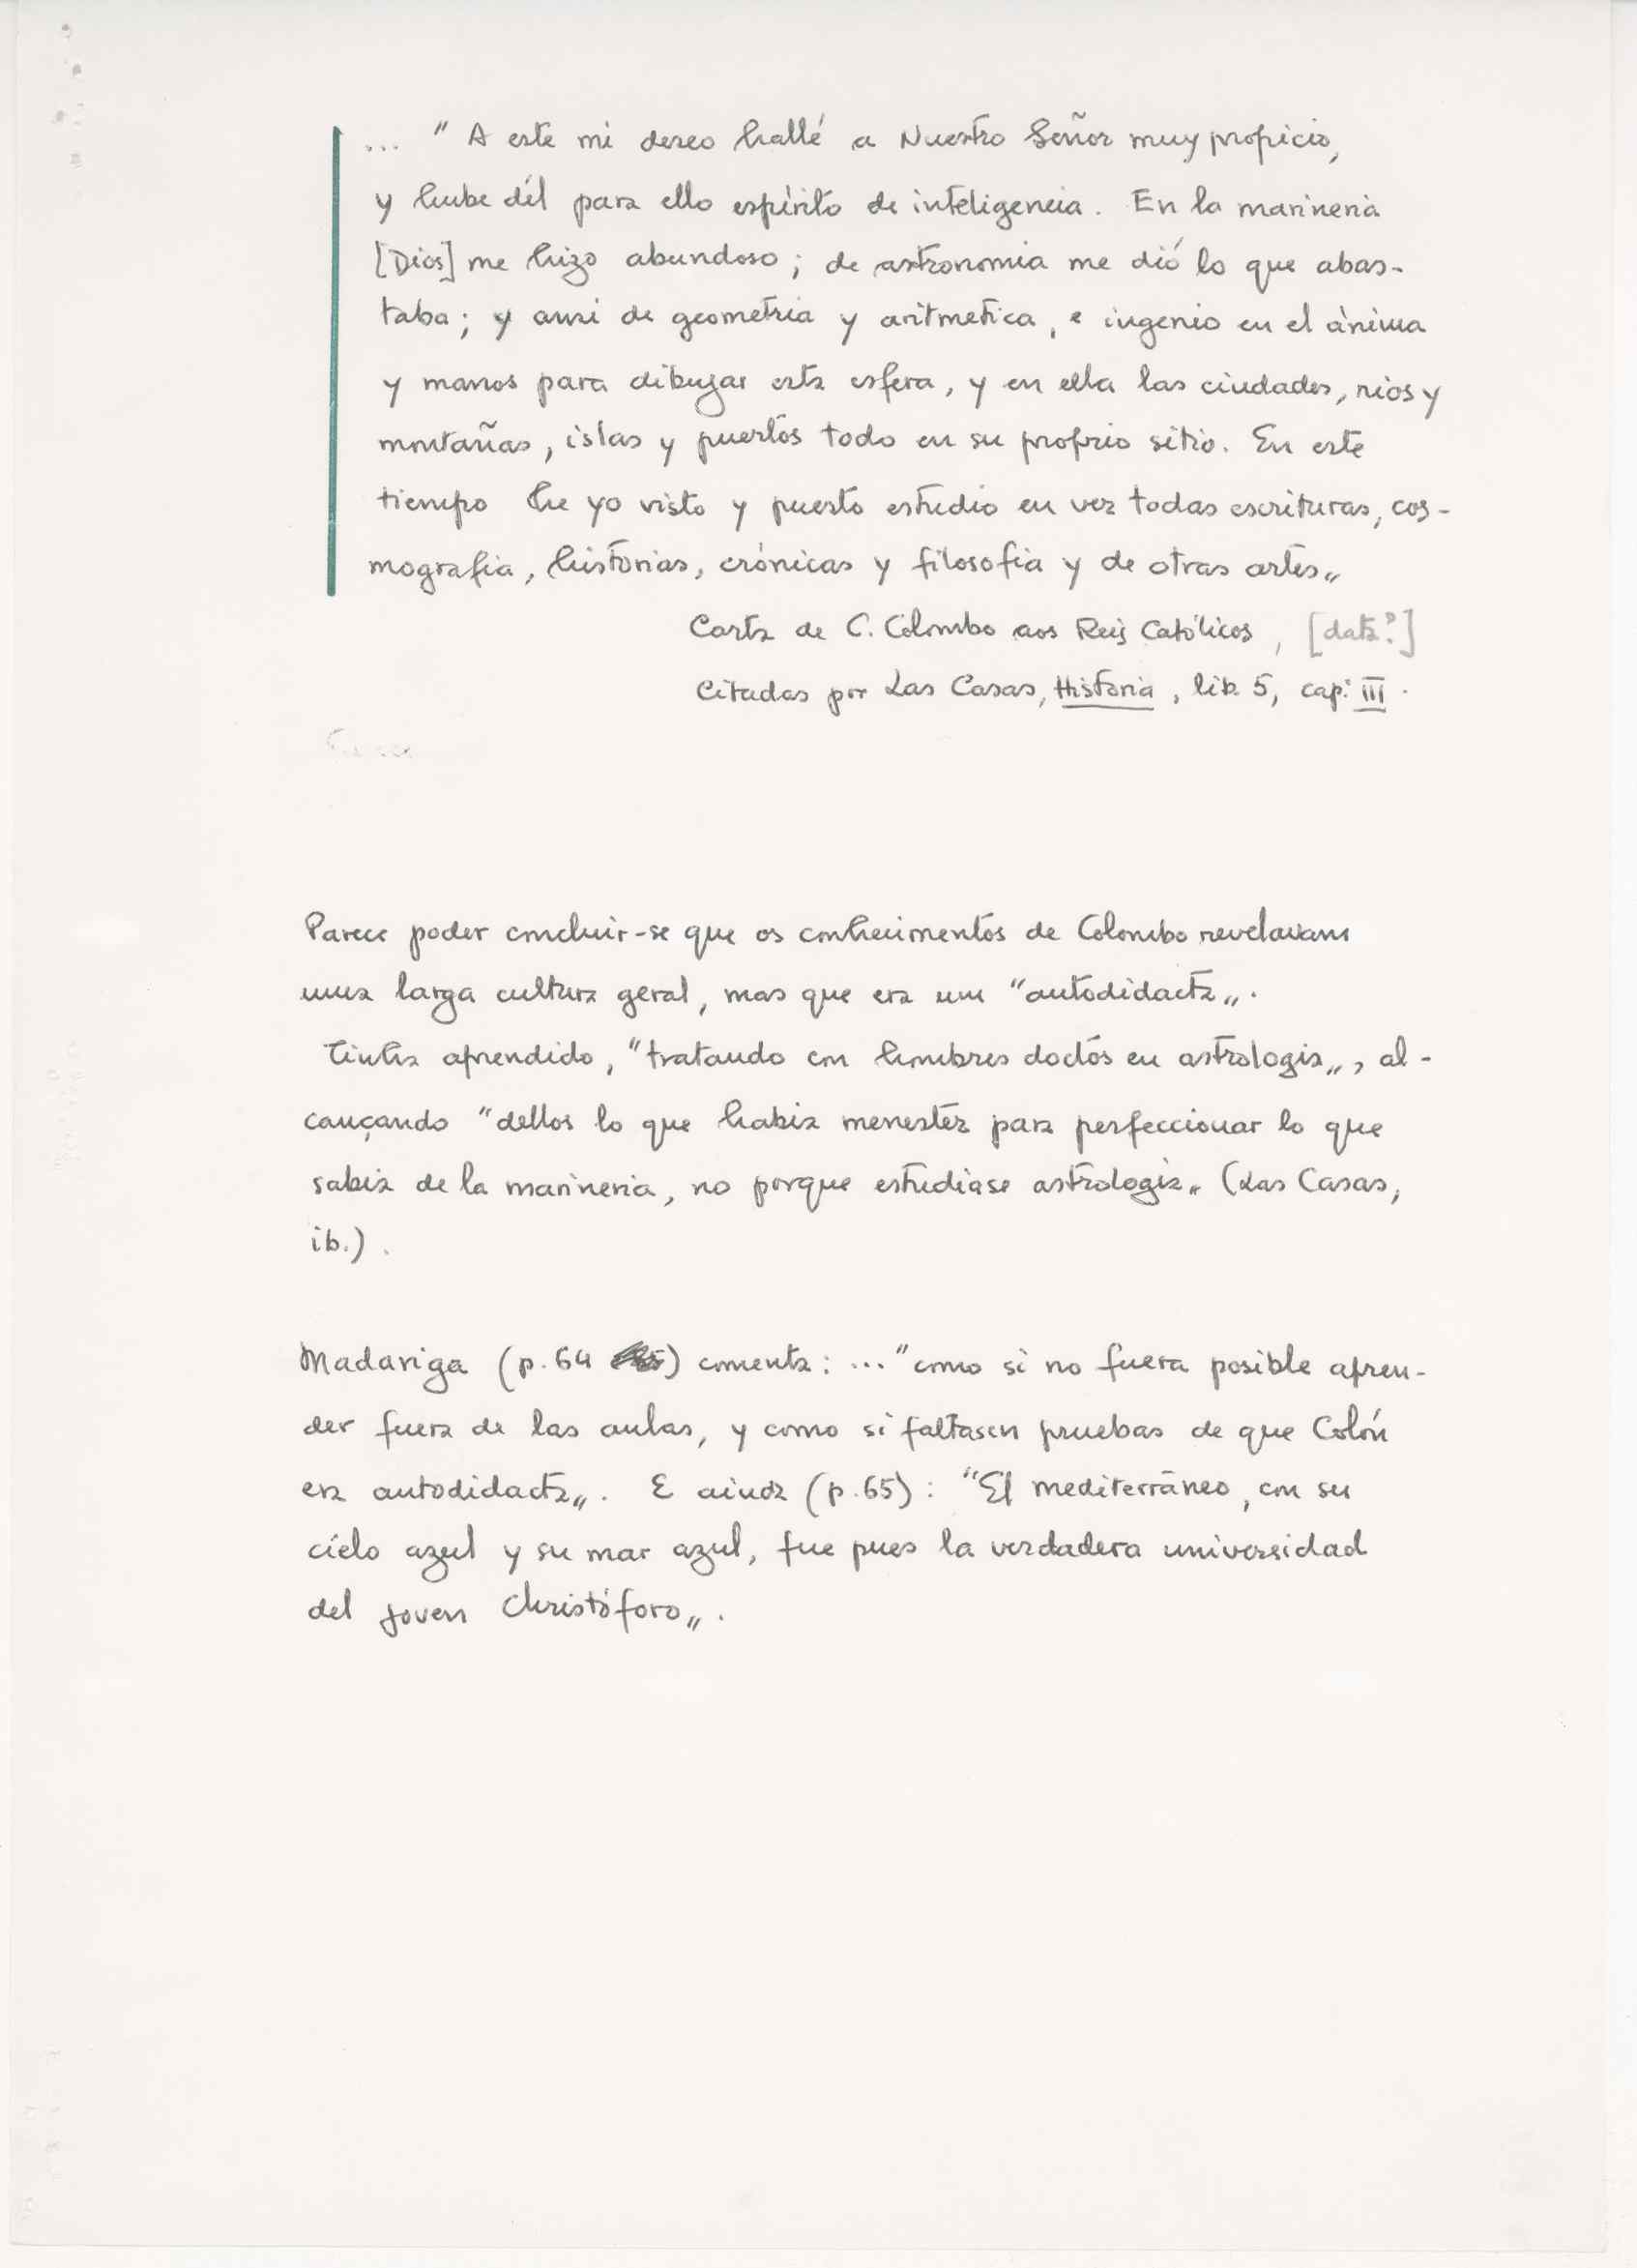 ... "A este mi deseo hallé a Nuestro Señor muy propicio,
y hube dél para ello espírito de inteligencia. En la marineria
[Dios] me hizo abundoso; de astronomia me dió lo que abas-
taba; y ansi de geometria y aritmetica, e ingenio en el ánima
y manos para dibujar esta esfera, y en ella las ciudades, rios y
montañas, islas y puertos todo en su proprio sitio. En este
tiempo he yo visto y puesto estudio en ver todas escrituras, cos-
mografia, historias, crónicas y filosofia y de otras artes„
Carta de C. Colombo aos Reis Católicos, [data?]
Citadas por Las Casas, Historia, lib. 5, cap. III.
Parece poder concluir-se que os conhecimentos de Colombo revelavam
uma larga cultura geral, mas que era um "autodidacta„.
Tinha aprendido, "tratando con hombres doctos en astrologia„, al-
cançando "dellos lo que habia menester para perfeccionar lo que
sabia de la marineria, no porque estudiase astrologia„ (Las Casas,
ib.).
Madariga (p. 64) comenta: ... "como si no fuera posible apren-
der fuera de las aulas, y como si faltasen pruebas de que Colón
era autodidacta„. E ainda (p. 65): "El mediterráneo, con su
cielo azul y su mar azul, fue pues la verdadera universidad
del joven Christóforo„.